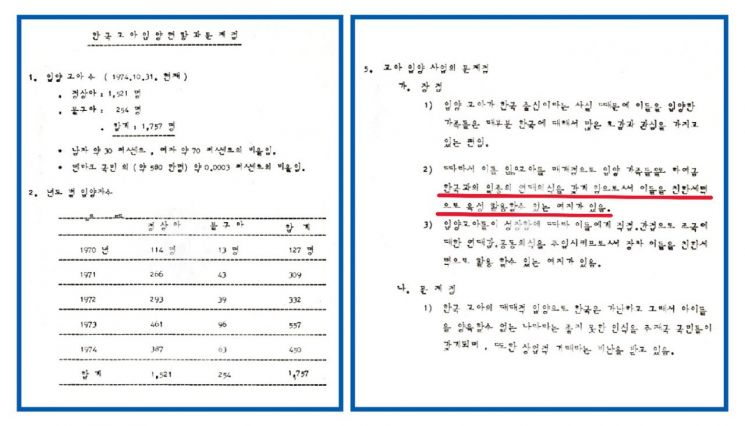 한국 고아 입양 현황과 문제점
1. 입양 고아 수 ( 1974.10.31. 현재 )
. 정상아 : 1,521 명
. 불구아 : 254 명
. 합계 : 1,757 명
* 남자 약 30 퍼센트, 여자 약 70 퍼센트의 비율임.
* 덴마크 국민의 (약 500 만명) 약 0,0003 퍼센트의 비율임.
2. 년도 별 입양자수
년 도
정상아 불구아 합계
1970 년 114 명 13 명 127 명
1971 266 43 309
1972 293 39 332
1973 461 96 557
1974 387 63 450
합 계 1,521 254 1,757
5. 고아 입양 사업의 문제점
가. 장 점
1) 입양 고아가 한국 출신이라는 사실 때문에 이들을 입양한
가족들은 대부분 한국에 대해서 많은 호감과 관심을 가지고
있는 편임.
2) 따라서 이들 입양고아를 매개점으로 입양 가족들로 하여금
한국과의 일종의 연대의식을 갖게 함으로써 이들을 친한세력
으로 육성 활용할수 있는 여지가 있음.
3) 입양고아들이 성장함에 따라 이들에게 직접,간접으로 조국에
대한 연대감,공동의식을 주입시키므로써 장차 이들을 친한세
력으로 활용 할수 있는 여지가 있음.
나. 문 제 점
1) 한국 고아의 대대적 입양으로 한국은 가난하고 그래서 아이들
을 양육할수 없는 나라라는 좋지 못한 인식을 주재국 국민들이
갖게되며, 또한 상업적 거래라는 비난을 받고 있음.